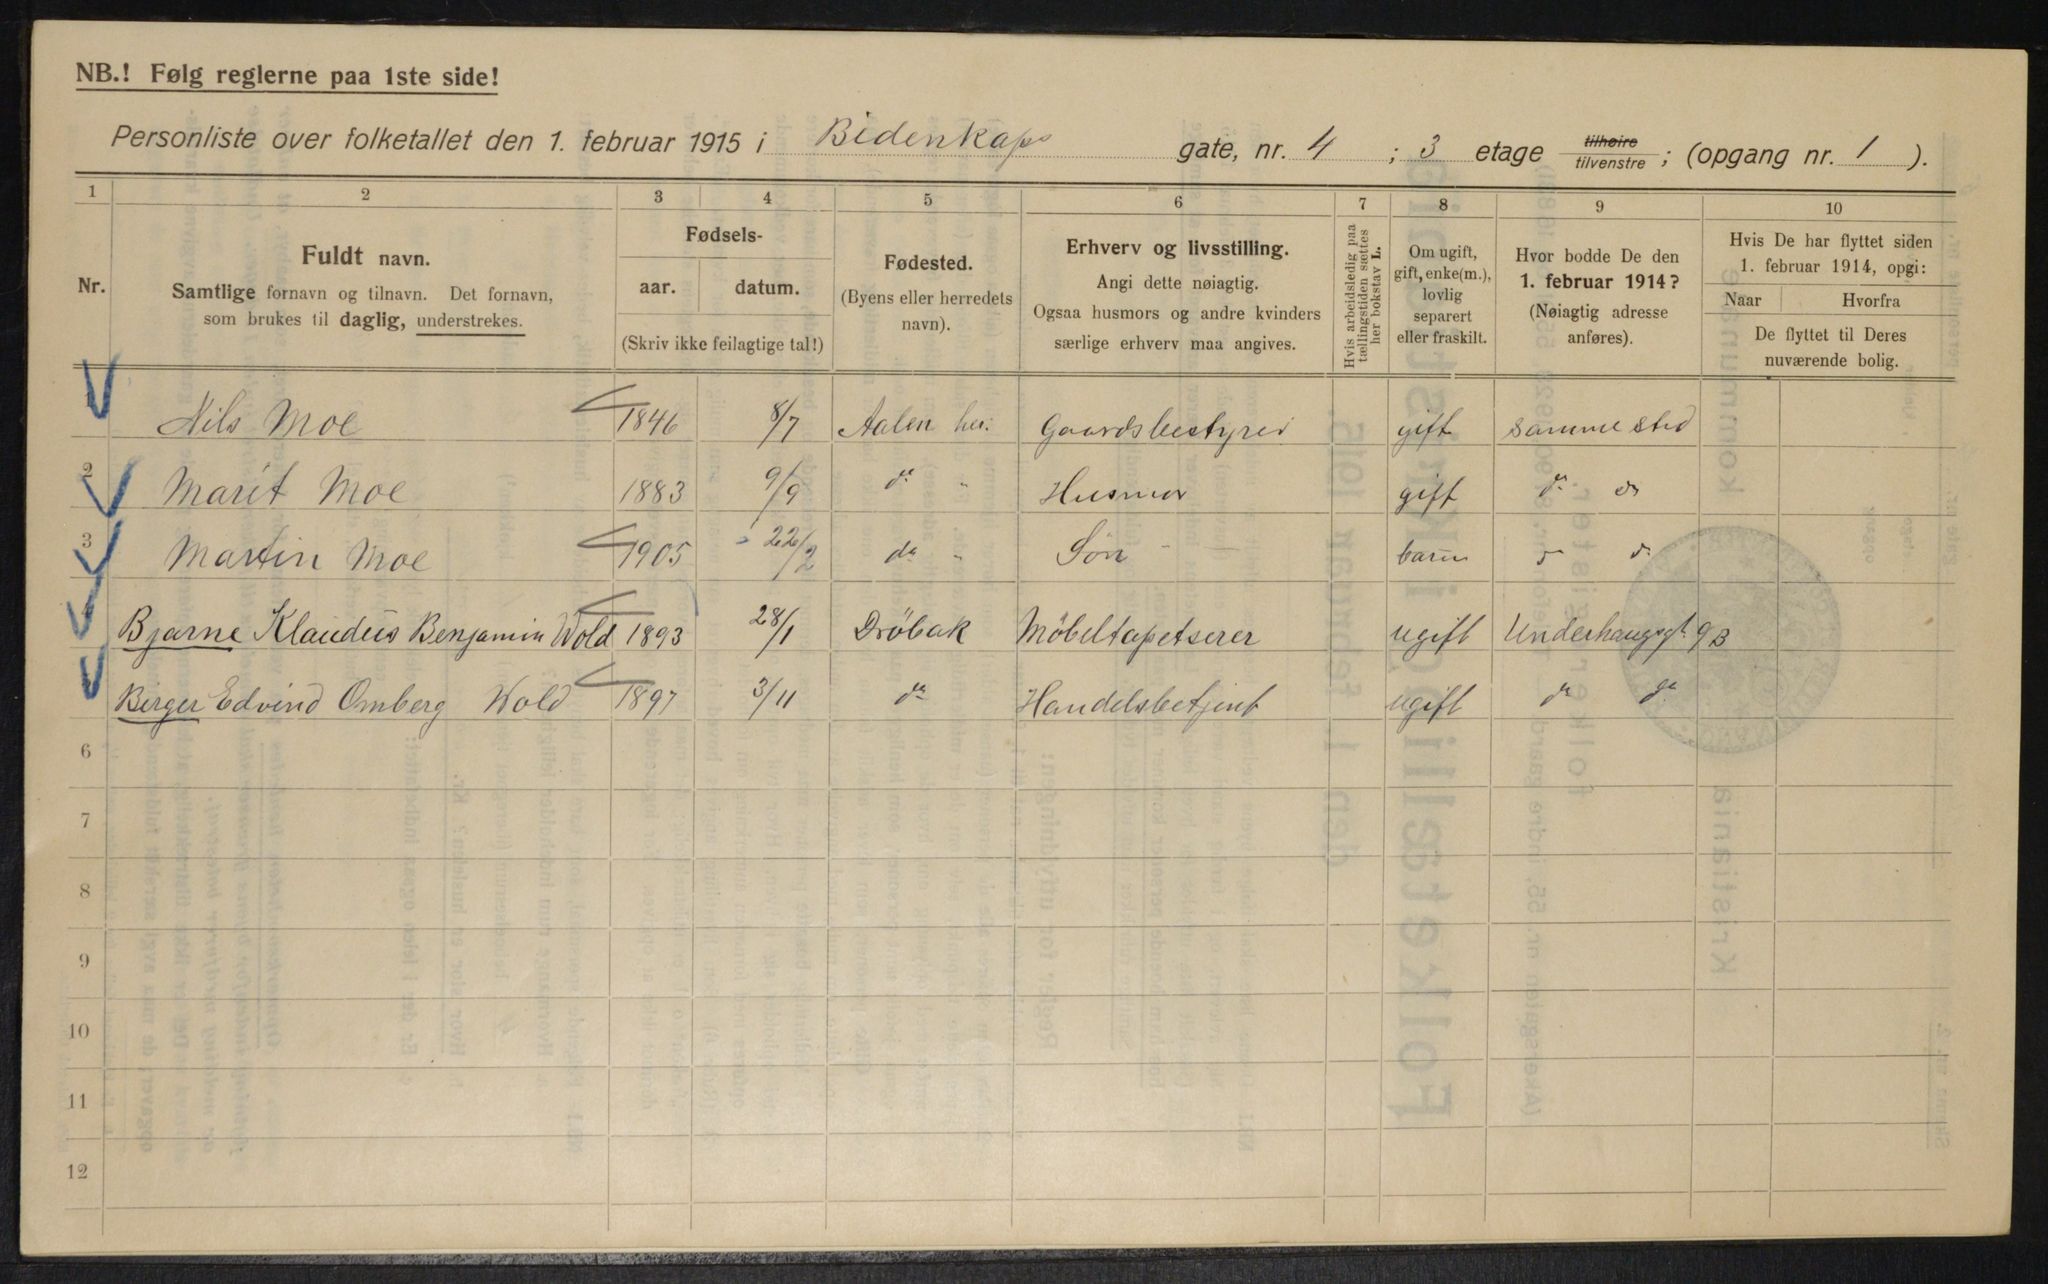 NB.! Følg reglerne paa 1ste side!
Personliste over folketallet den 1. februar 1915 i Bidenkaps gate, nr. 4 ; 3 etage tilhøire tilvenstre ; (opgang nr. 1 ).
1 2 3 4 5 6 7 8 9 10
Nr.
Fuldt navn.
Samtlige fornavn og tilnavn. Det fornavn,
som brukes til daglig, understrekes.
Fødsels-
aar. datum.
(Skriv ikke feilagtige tal!)
Fødested.
(Byens eller herredets
navn).
Erhverv og livsstilling.
Angi dette nøiagtig.
Ogsaa husmors og andre kvinders
særlige erhverv maa angives.
Hvis arbeidsledig paa
tællingstiden sættes
her bokstav L.
Om ugift,
gift, enke(m.),
lovlig
separert
eller fraskilt.
Hvor bodde De den
1. februar 1914?
(Nøiagtig adresse
anføres).
Hvis De har flyttet siden
1. februar 1914, opgi:
Naar Hvorfra
De flyttet til Deres
nuværende bolig.
Nils Moe 1846 8/7 Aalen her. Gaardsbestyrer gift samme sted
2 Marit Moe 1883 9/9 do " Husmor gift do do
3 Martin Moe 1905 22/2 do " Søn barn do do
Bjarne Klaudius Benjamin Wold 1893 28/1 Dröbak Möbeltapetserer ugift Underhaugsgt. 9B
Birger Edvind Omberg Wold 1897 3/11 do Handelsbetjent ugift do do
6
7
8
9
10
11
12